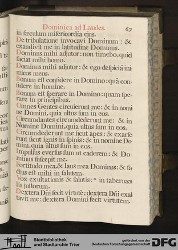 Dominica ad Laudes.
in seculum misericordia ejus.
De tribulatione invocavi Dominum: &
exaudivit me in latitudine Dominus.
Dominus mihi adjutor: non timebo, quid
faciat mihi homo.
Dominus mihi adjutor: & ego despiciam
micos meos.
Bonum est confidere in Domino: quàm
fidere in homine.
Bonum est sperare in Domino: quàm spe-
rare in principibus.
Omnes Gentes circuierunt me: & in nomi-
ne Domini, quia ultus sum in eos.
Circumdantes circumdederunt me: & in
Nomine Domini, quia ultus sum in eos.
Circumdederunt me sicut apes: & exarse-
runt sicut ignis in spinis: & in nomine Do-
mini, quia ultus sum in eos.
Impulsus eversus sum ut caderem: & Do-
minus suscepit me.
Fortitudo mea, & laus mea Dominus: & fa-
ctus est mihi in salutem.
Vox exultationis & salutis: in taberna-
lis justorum.
Dextera Domini fecit virtutem: dextera Domini exal-
tavit me: dextera Domini fecit virtutem.
Stadtbibliothek
und Stadtarchiv Trier
gefördert von der
Deutschen Forschungsgemeinschaft
DFG